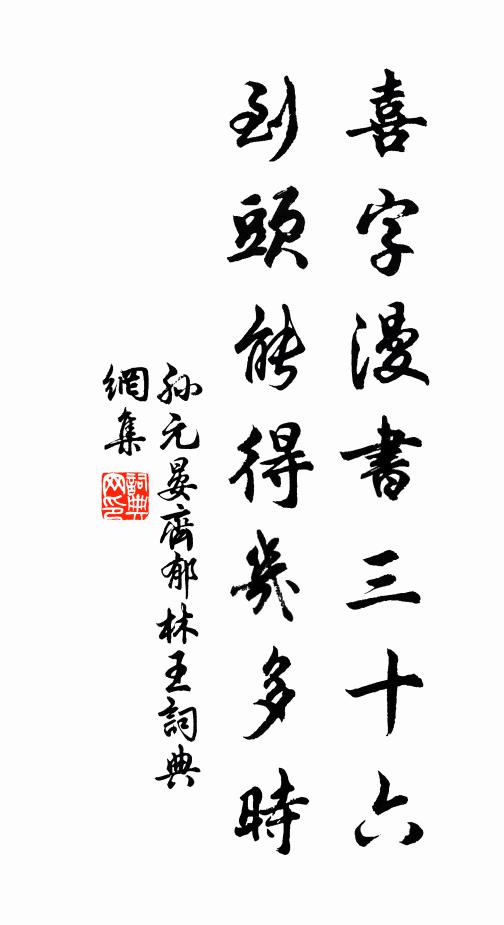 喜字漫書三十六
到頭能得幾多時
孫元晏齊郁林王詞典
網集
詞典
网印